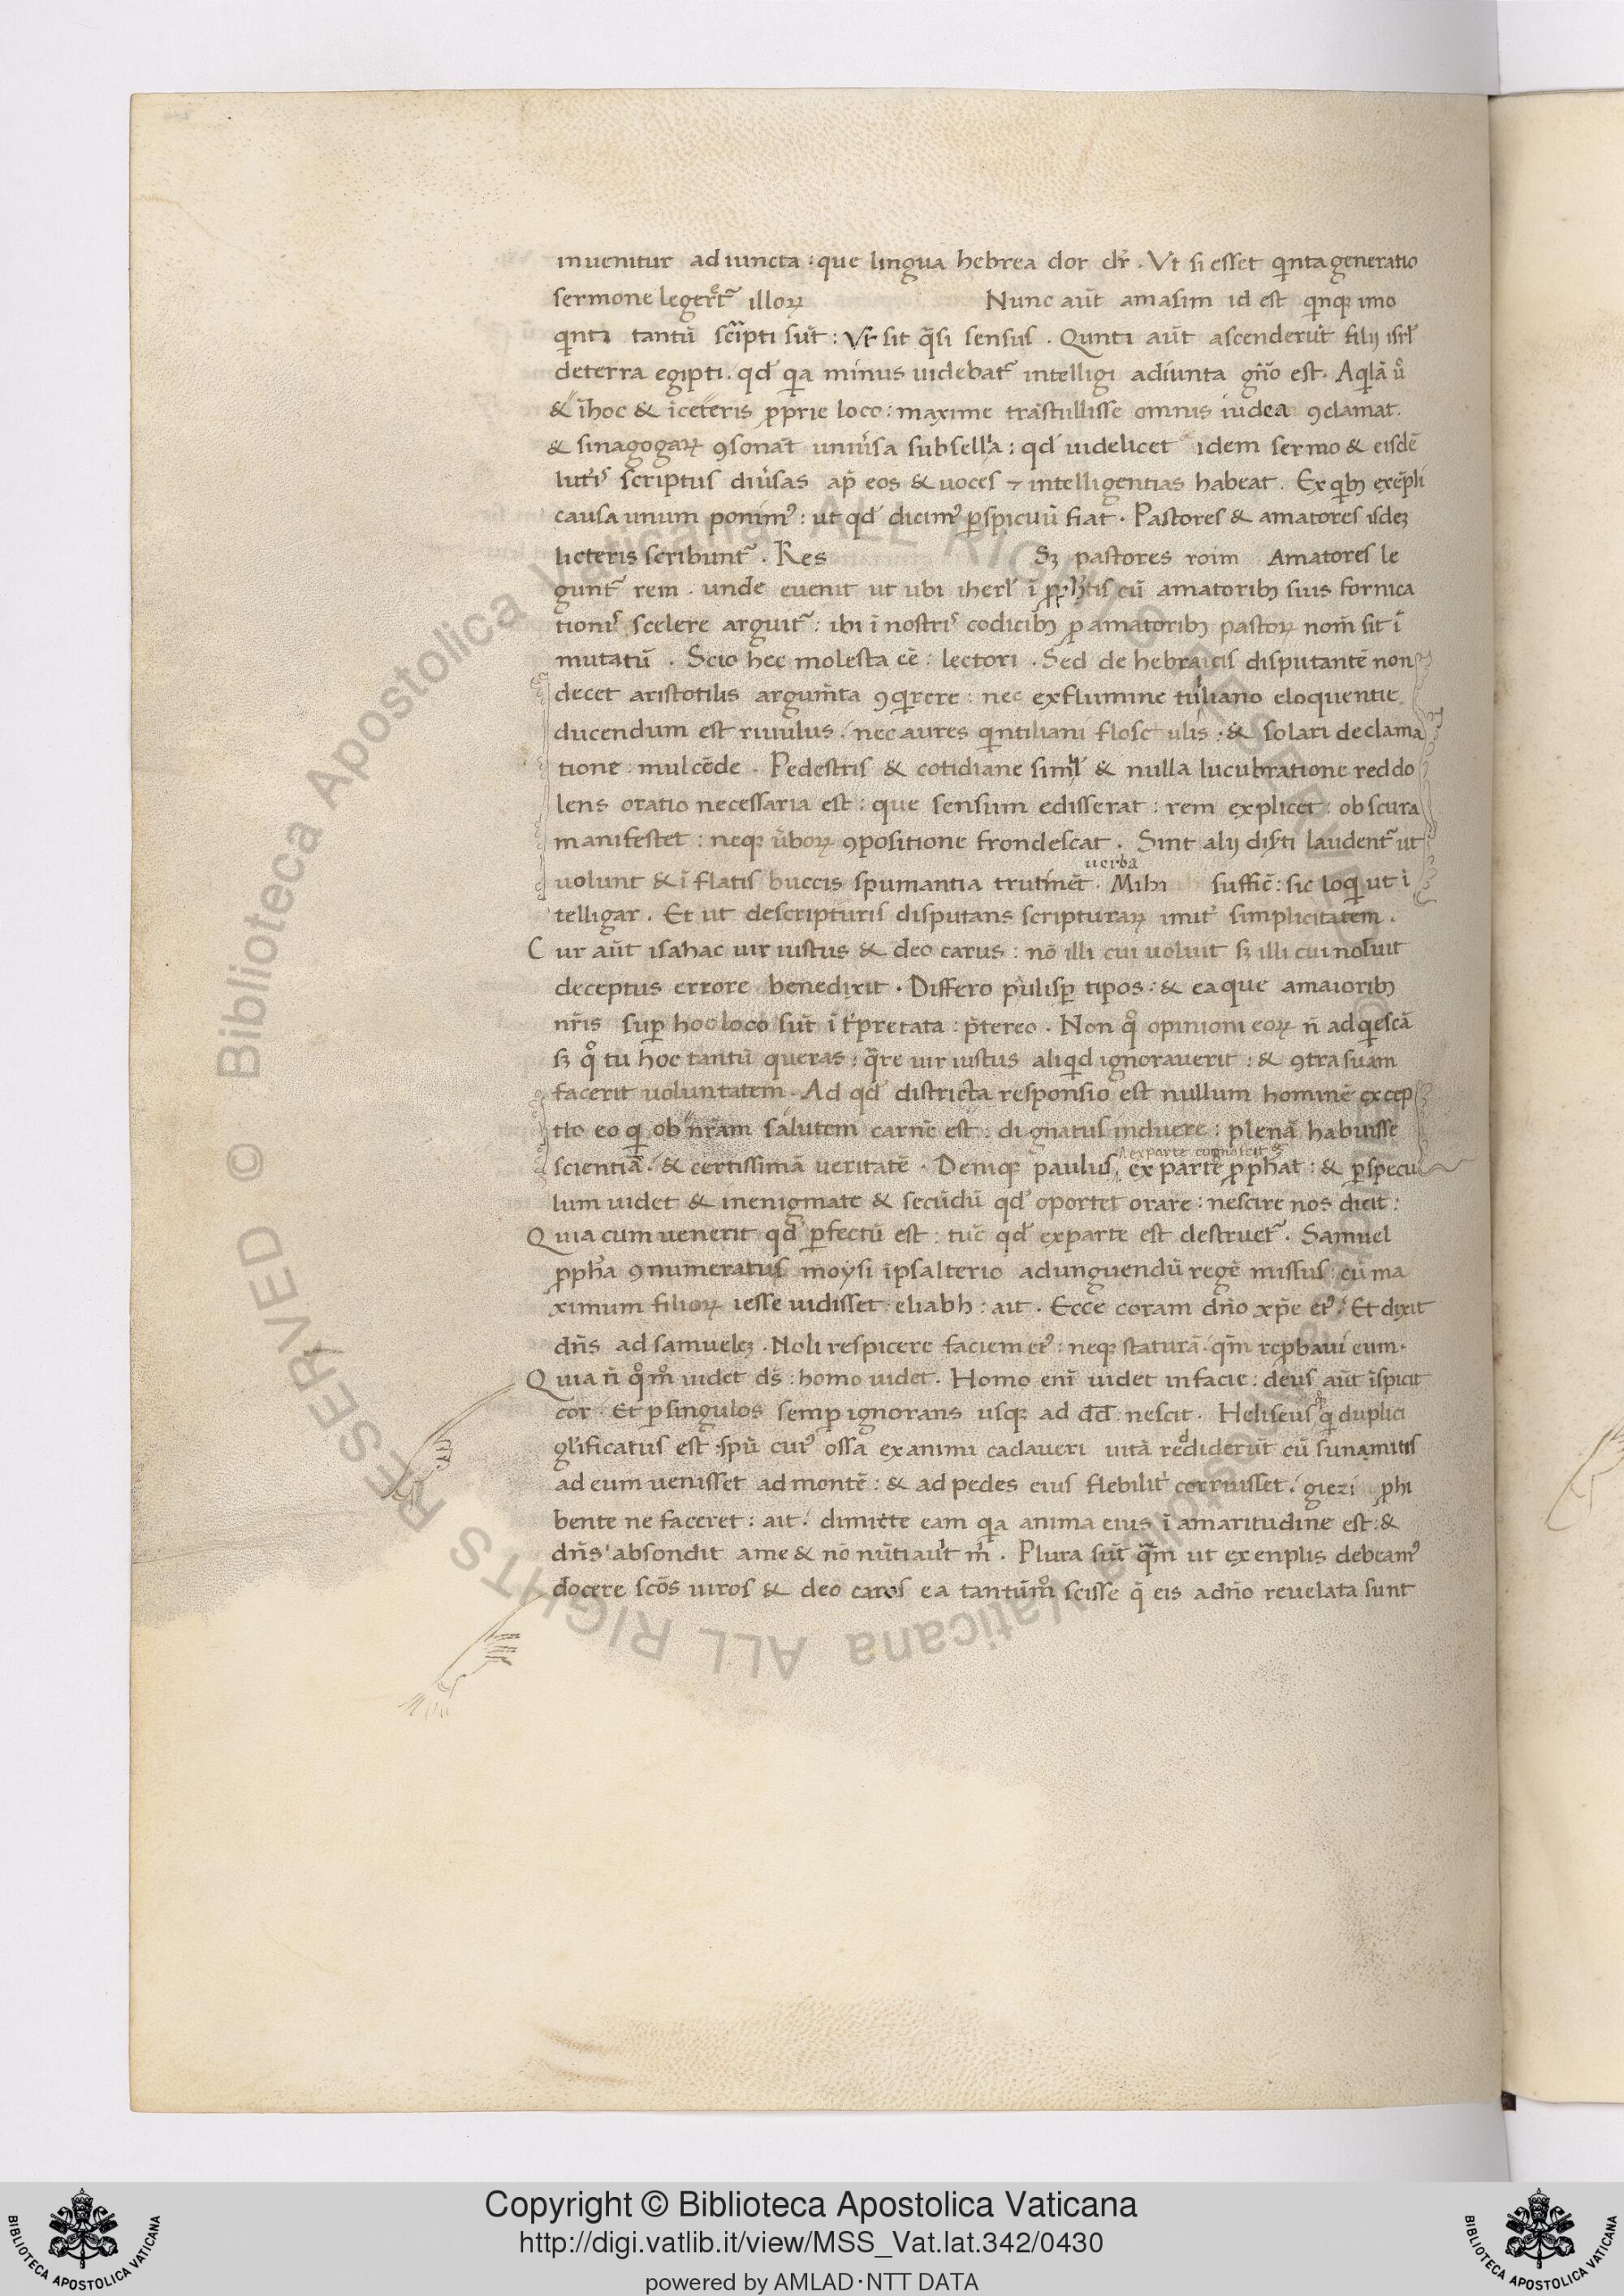 inuenitur adiuncta : que lingua hebrea dor dr̃ . Vt si esset qinta generatio
sermone legeret᷑ illoꝝ Nunc aũt amasim id est qinqꝫ imo
qinti tantũ scripti sũt : Vt sit q̃si sensus . Qunti aũt ascenderũt filij isrl̃
deterra egipti . qd̃ qia minus uidebat᷑ intelligi adiunta gñо est . Aqlã ů
& ĩhoc & ĩceteris ꝓprie loco : maxime trãstullisse omnis iudea ꝯclamat .
& sinagogaꝝ ꝯsonãt uniuersa subsellia : qd̃ uidelicet idem sermo & eisdẽ
scriptus diũsas ap̃ eos & uoces ⁊ intelligentias habeat . Ex qibꝫ exẽpli
causa unum ponimꝰ : ut qd̃ dicimꝰ ꝑspicuũ fiat . Pastores & amatores isdeꝫ
licteris scribunt᷑ . Res Sꝫ pastores roim Amatores le
gunt᷑ rem . unde euenit ut ubi iherl̃ ĩ cũ amatoribꝫ suis fornica
tionis scelere arguit᷑ : ibi ĩ nostris codicibꝫ ꝓ amatoribꝫ pastoꝝ nom̃ sit ĩ
mutatũ . Scio hec molesta eẽ : lectori . Sed de hebraicis disputantẽ non
decet aristotilis argum̃ta ꝯqirere : nec exflumine tuliano eloquentie
ducendum est riuulus . nec aures qintiliani flosc ulis . & solari declama
tione mulcẽde . Pedestris & cotidiane simil̃ & nulla lucubratione reddo
lens oratio necessaria est : que sensum edisserat : rem explicet : obscura
manifestet : neqꝫ ũboꝝ ꝯpositione frondescat . Sint alij disti laudent᷑ ut
uerba
uolunt & ĩ flatis buccis spumantia trutinẽt . Mihi suffic̃ : sic loqi ut ĩ
telligar . Et ut descripturis disputans scripturaꝝ imiť simplicitatem .
Cur aũt isahac uir iustus & deo carus : nõ illi cui uoluit sꝫ illi cui noluit
deceptus errore benedixit . Differo ꝑ tipos . & eaque amaioribꝫ
nr̃is suꝑ hoc loco sũt ĩ ťpretata : p̃tereo . Non qͦ opinioni eoꝝ ñ adqiescã
sꝫ qͦ tu hoc tantũ queras : q̃re uir iustus aliqid ignorauerit : & ꝯtra suam
facerit uoluntatem . Ad qd̃ districta responsio est nullum hominẽ excep
tio eo qi ob nr̃am salutem carnẽ est : dignatus induere : plenã habuisse
exparte cognoscit &
scientiã . & certissimã ueritatẽ . Deniqꝫ paulus ex parte ꝓphat : & ꝑspecu
lum uidet & inenigmate & secũdũ qd̃ oportet orare : nescire nos dicit :
Quia cum uenerit qd̃ ꝑfectũ est : tũc qd̃ exparte est destruet᷑ . Samuel
ꝓph̃a ꝯnumeratus moysi ĩpsalterio adunguendũ regẽ missus : cũ ma
ximum filioꝝ iesse uidisset : eliabh : ait . Ecce coram dño xp̃e eiꝰ . Et dixit
dñs ad samueleꝫ . Noli respicere faciem eiꝰ : neqꝫ staturã . qm̃ reꝓbaui eum .
Quia ñ qͦm̃ uidet ds̃ : homo uidet . Homo enĩ uidet infacie : deus aũt ĩspicit
cor . Et ꝑsingulos semꝑ ignorans usqꝫ ad dd̃ : nescit . Heliseus qi duplici
gl̃ificatus est spũ cuiꝰ ossa exanimi cadaueri uitã reddiderũt cũ sunamitis
ad eum uenisset ad montẽ : & ad pedes eius flebiliť corruisset . giezi ꝓhi
bente ne faceret : ait . dimicte eam qia anima eius ĩ amaritudine est : &
dñs absondit ame & nõ nũtiauit m̃ . Plura sũt q̃m ut exenplis debeamꝰ
docere scõs uiros & deo caros ea tantũmͦ scisse q̃ eis adño reuelata sunt
Copyright © Biblioteca Apostolica Vaticana
http://digi.vatlib.it/view/MSS_Vat.lat.342/0430
powered by AMLAD·NTT DATA
BIBLIOTECA APOSTOLICA VATICANA
BIBLIOTECA APOSTOLICA VATICANA
© Biblioteca Apostolica Vaticana ALL RIGHTS RESERVED
© Biblioteca Apostolica Vaticana ALL RIGHTS RESERVED